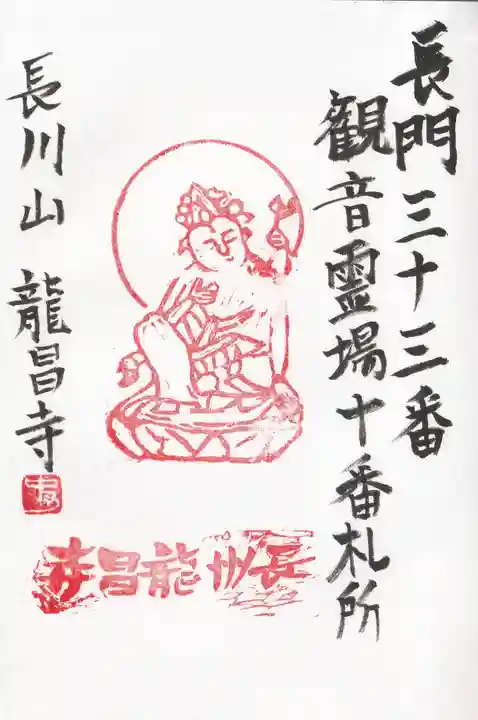 長門三十三番
観音霊場十番札所
長川山 龍昌寺
長州龍昌寺